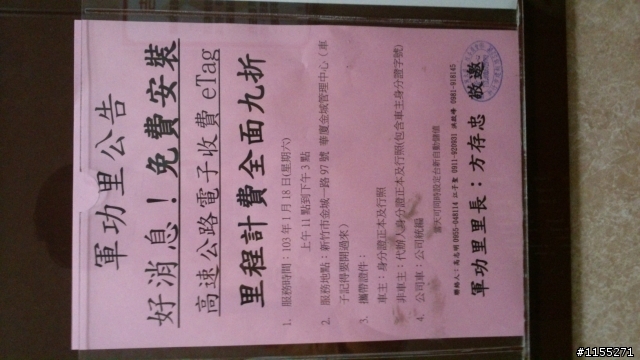 軍功里公告
好消息！免費安裝
高速公路電子收費 eTag
里程計費全面九折
1. 服務時間：103年1月18日(星期六)
上午11點到下午3點
2. 服務地點：新竹市金城一路97號 華廈金城管理中心（車
子記得要開過來）
3. 攜帶證件：
車主：身分證正本及行照
非車主：代辦人身分證正本及行照(包含車主身分證字號)
4. 公司車：公司統編
當天可同時設定台新自動儲值
聯絡人：高志明 0955-048114 0911-029031 0981-018145
軍功里里長：方存忠 敬邀
#1155271